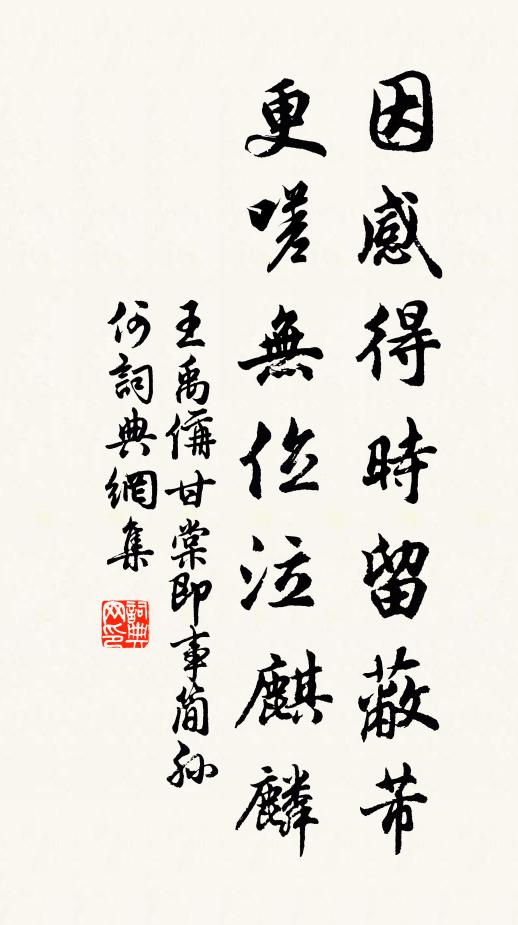 因感得時留蔽芾
更嗟無位泣麒麟
王禹偁甘棠即事简孙
何詞典網集
詞典网印